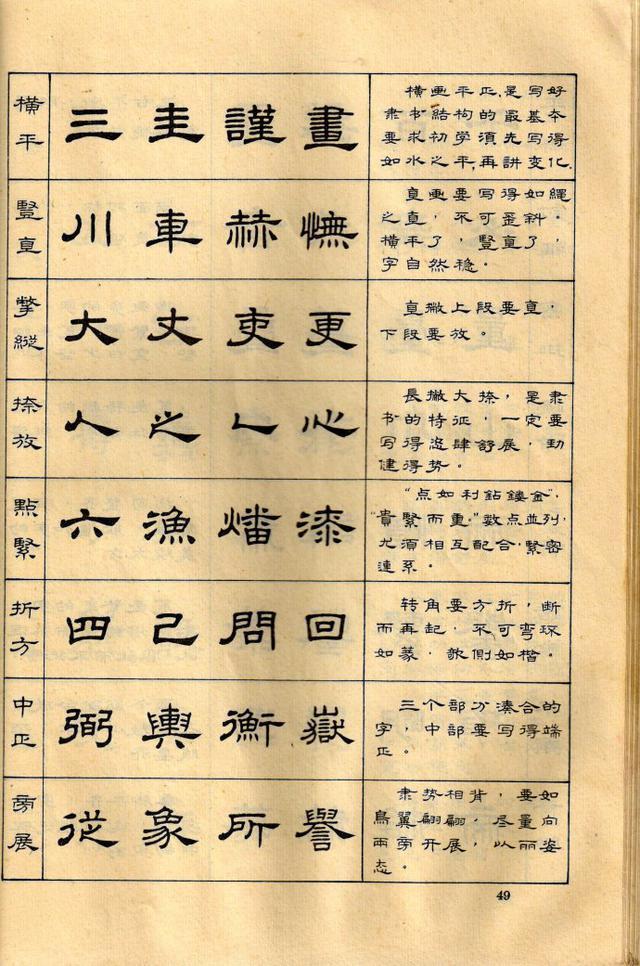 横平
三 圭 謹 畫
横画平正，是写好
隶书结构的最基本
要求，初学须先写得
如水之平，再讲变化。
豎直
川 車 赫 憮
直画要写得如繩
之直，不可歪斜。
横平了，豎直了，
字自然稳。
撆縱
大 丈 吏 更
直撇上段要直，
下段要放。
捺放
人 之 乀 心
長撇大捺，是隶
书的特征，一定要
写得恣肆舒展，劲
健得势。
點緊
六 漁 燔 漆
“点如利鉆鏤金”，
“貴緊而重。”数点並列，
尤須相互配合，緊密
連系。
折方
四 己 問 回
转角要方折，断
而再起，不可弯环
如篆，欹侧如楷。
中正
弼 輿 衡 嶽
三个部分湊合的
字，中部要写得端
正。
旁展
従 象 所 譽
隶势相背，要如
鳥翼翩翩，尽量向
兩旁开展以丽姿
态。
49